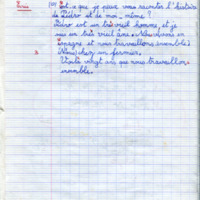 Est ce que je peux vous raconter l'histoire
de Pédro et de moi-même ?
Pédro est un très vieil homme, et je
suis un très vieil âne. Nous vivons en
espagne et nous travaillons ensemble
chez un fermier.
Voilà vingt ans que nous travaillons
ensemble.